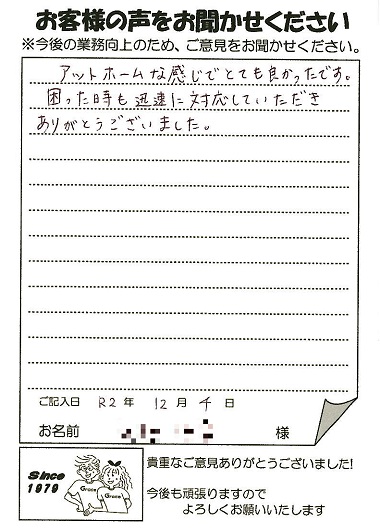 お客様の声をお聞かせください
※今後の業務向上のため、ご意見をお聞かせください。
アットホームな感じでとても良かったです。
困った時も迅速に対応していただき
ありがとうございました。
ご記入日 R2年 12月 4日
お名前 様
Since
1979
Grace Grace
貴重なご意見ありがとうございました!
今後も頑張りますので
よろしくお願いいたします